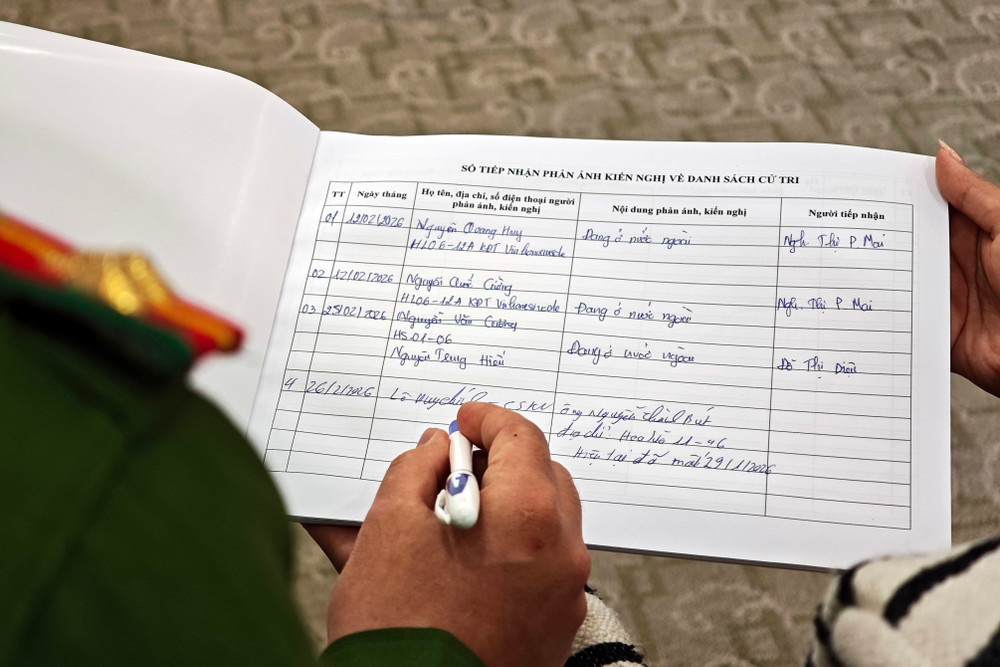 SỔ TIẾP NHẬN PHẢN ÁNH KIẾN NGHỊ VỀ DANH SÁCH CỬ TRI
TT Ngày tháng Họ tên, địa chỉ, số điện thoại người phản ánh, kiến nghị Nội dung phản ánh, kiến nghị Người tiếp nhận
01 12/02/2026 Nguyễn Quang Huy Đang ở nước ngoài Ngh. Thị P Mai
HL06-12A KĐT Vinhomes
02 12/02/2026 Nguyễn Quốc Cường
HL06-12A KĐT Vinhomes Đang ở nước ngoài Ngh. Thị P Mai
03 25/02/2026 Nguyễn Văn
HS.01-06
Nguyễn Trung Hiếu Đang ở nước ngoài Đỗ Thị Diện
4 26/2/2026 Lê Huy CSKV Ông Nguyễn Bút
địa chỉ: 11-46
Hiện tại đã mất 29/1/2026